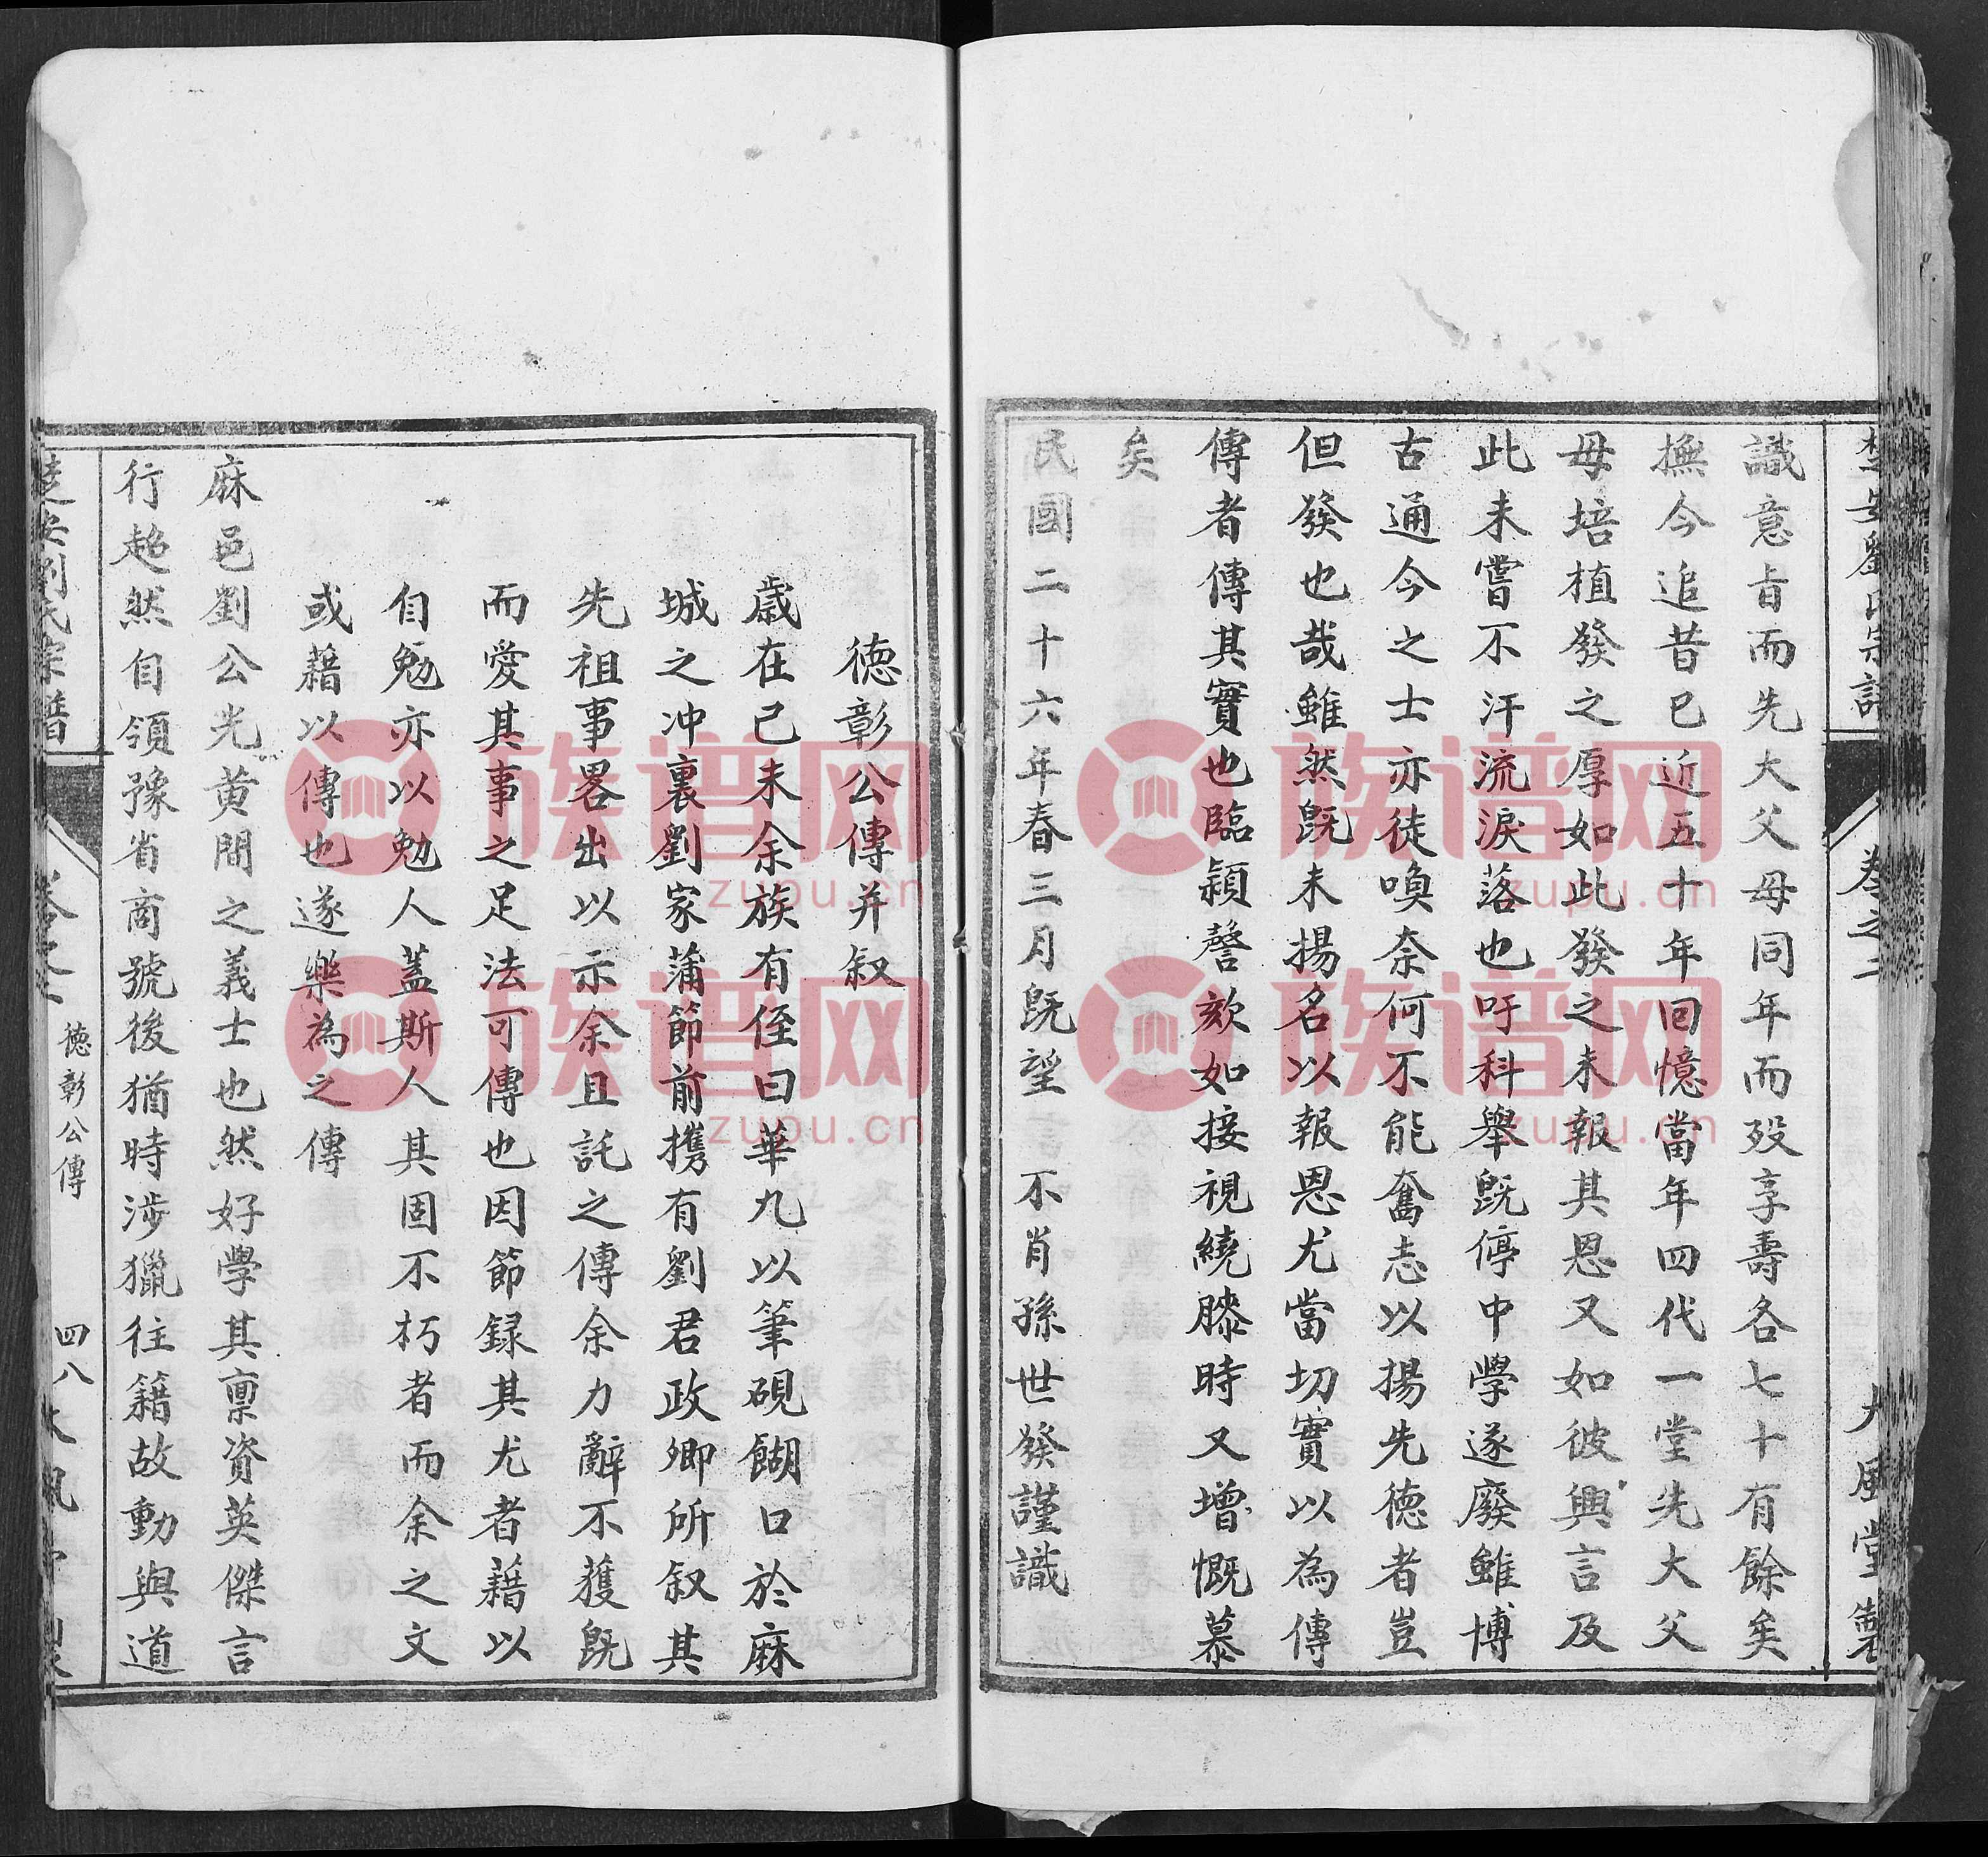 楚安劉氏宗譜 卷之二 大風堂製
識意旨而先大父母同年而歿享壽各七十有餘矣
撫今追昔已近五十年回憶當年四代一堂先大父
母培植發之厚如此發之未報其恩又如彼興言及
此未嘗不汗流淚落也吁科舉既停中學遂廢雖博
古通今之士亦徒喚奈何不能奮志以揚先德者豈
但發也哉雖然既未揚名以報恩尤當切實以為傳
傳者傳其實也臨穎謦欬如接視繞膝時又增慨慕
矣
民國二十六年春三月既望 不肖孫世發謹識
德彰公傳并叙
歲在己未余族有侄曰華九以筆硯餬口於麻
城之冲裏劉家蒲節前携有劉君政卿所叙其
先祖事畧出以示余且託之傳余力辭不獲既
而愛其事之足法可傳也因節録其尤者藉以
自勉亦以勉人蓋斯人其固不朽者而余之文
或藉以傳也遂樂為之傳
麻邑劉公光黄間之義士也然好學其禀資英傑言
行趋然自領豫省商號後猶時涉獵往籍故動與道
楚安劉氏宗譜 卷之二 德彰公傳 四八 大風堂製
族谱网
zupu.cn
族谱网
zupu.cn
族谱网
zupu.cn
族谱网
zupu.cn